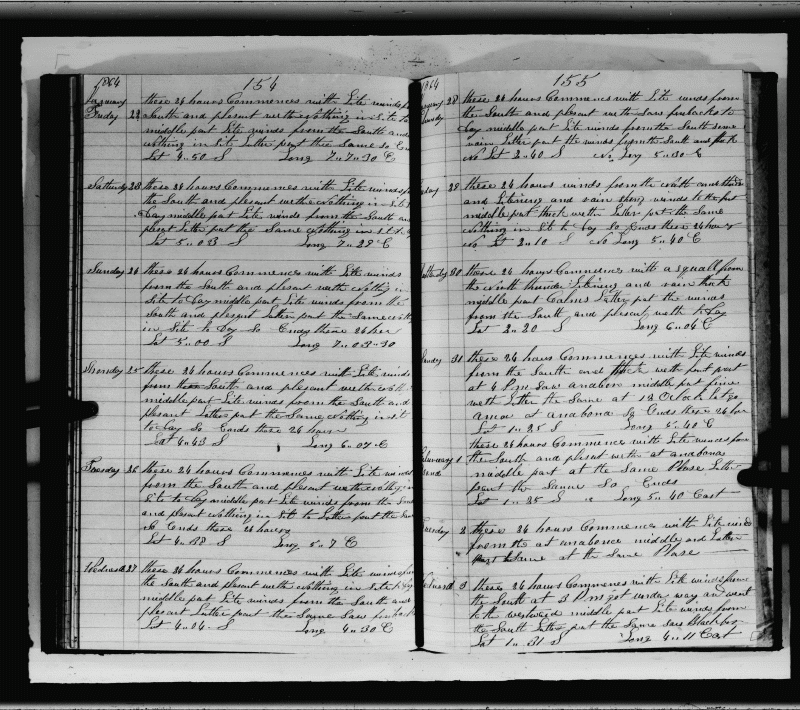 1864 154
January these 24 hours Commences with Lite winds
Friday 22 South and plesant weth Nothing in Sit to
middle part Lite winds from the South and
nothing in Sit Letter part thee Same So End
Lat 4..50 S Long 7..7..30 E
Saturday 23 these 24 hours Commences with Lite winds
the South and plesant weth Nothing in Sit
Day middle part Lite winds from the South an
plesant Letter part the Same Nothing in Sit
Lat 5..03 S Long 7..28 E
Sunday 24 these 24 hours Commences with Lite winds
from the South and plesant weth Nothing in
Sit to Day middle part Lite winds from the
South and plesant Letter part the Same Nothing
in Sit to Day So Ends these 24 her
Lat 5..00 S Long 7..03..30
Monday 25 these 24 hours Commences with Lite winds
from the South and plesant weth
middle part Lite winds from the South and
plesant Letter part the Same Nothing in Sit
to Day So Ends these 24 hours
Lat 4..43 S Long 6..07 E
Tuesday 26 these 24 hours Commences with Lite winds
from the South and plesant weth nothing in
Sit to Day middle part Lite winds from the South
and plesant nothing in Sit to Letter part the Same
So Ends these 24 hours
Lat 4..38 S Long 5..7 E
Wednesd 27 these 24 hours Commences with Lite winds from
the South and plesant weth nothing in Site to Day
middle part Lite winds from the South and
plesant Letter part the Same Saw finback
Lat 4..04 S Long 4..30 E
1864 155
January 28 these 24 hours Commences with Lite winds from
the South and plesant weth Saw finbacks to
Day middle part Lite winds from the South some
rain Letter part the winds from the South and thick
No Lat 2..40 S No Long 5..30 E
29 these 24 hours winds from the South and thick
and Litening and rain Strong winds to the
middle part thick weth Letter part the Same
Nothing in Sit to Day So Ends these 24 hours
No Lat 2..10 S No Long 5..40 E
30 these 24 hours Commences with a Squall from
the North thunder Litening and rain thick
middle part Calms Letter part the winds
from the South and plesant weth to Day
Lat 2..20 S Long 6..04 E
Sunday 31 these 24 hours Commences with Lite winds
from the South and thick weth part
at 4 P.M Saw anabon middle part fine
weth Letter the Same at 12 O Clock let go
at anabona So Ends these 24 her
Lat 1..25 S Long 5..40 E
February 1 these 24 hours Commence with Lite winds from
the South and plesant weth at anabona
middle part at the Same Plase Letter
part the Same So Ends
Lat 1..25 S Long 5..40 East
Tuesday 2 these 24 hours Commence with Lite winds
from the at anabona middle and Latter
part Same at the Same Plase
3 these 24 hours Commences with Lite winds from
the South at 3 P.M got under way and went
to the westward middle part Lite winds from
the South Letter part the Same Saw
Lat 1..31 S Long 4..11 East